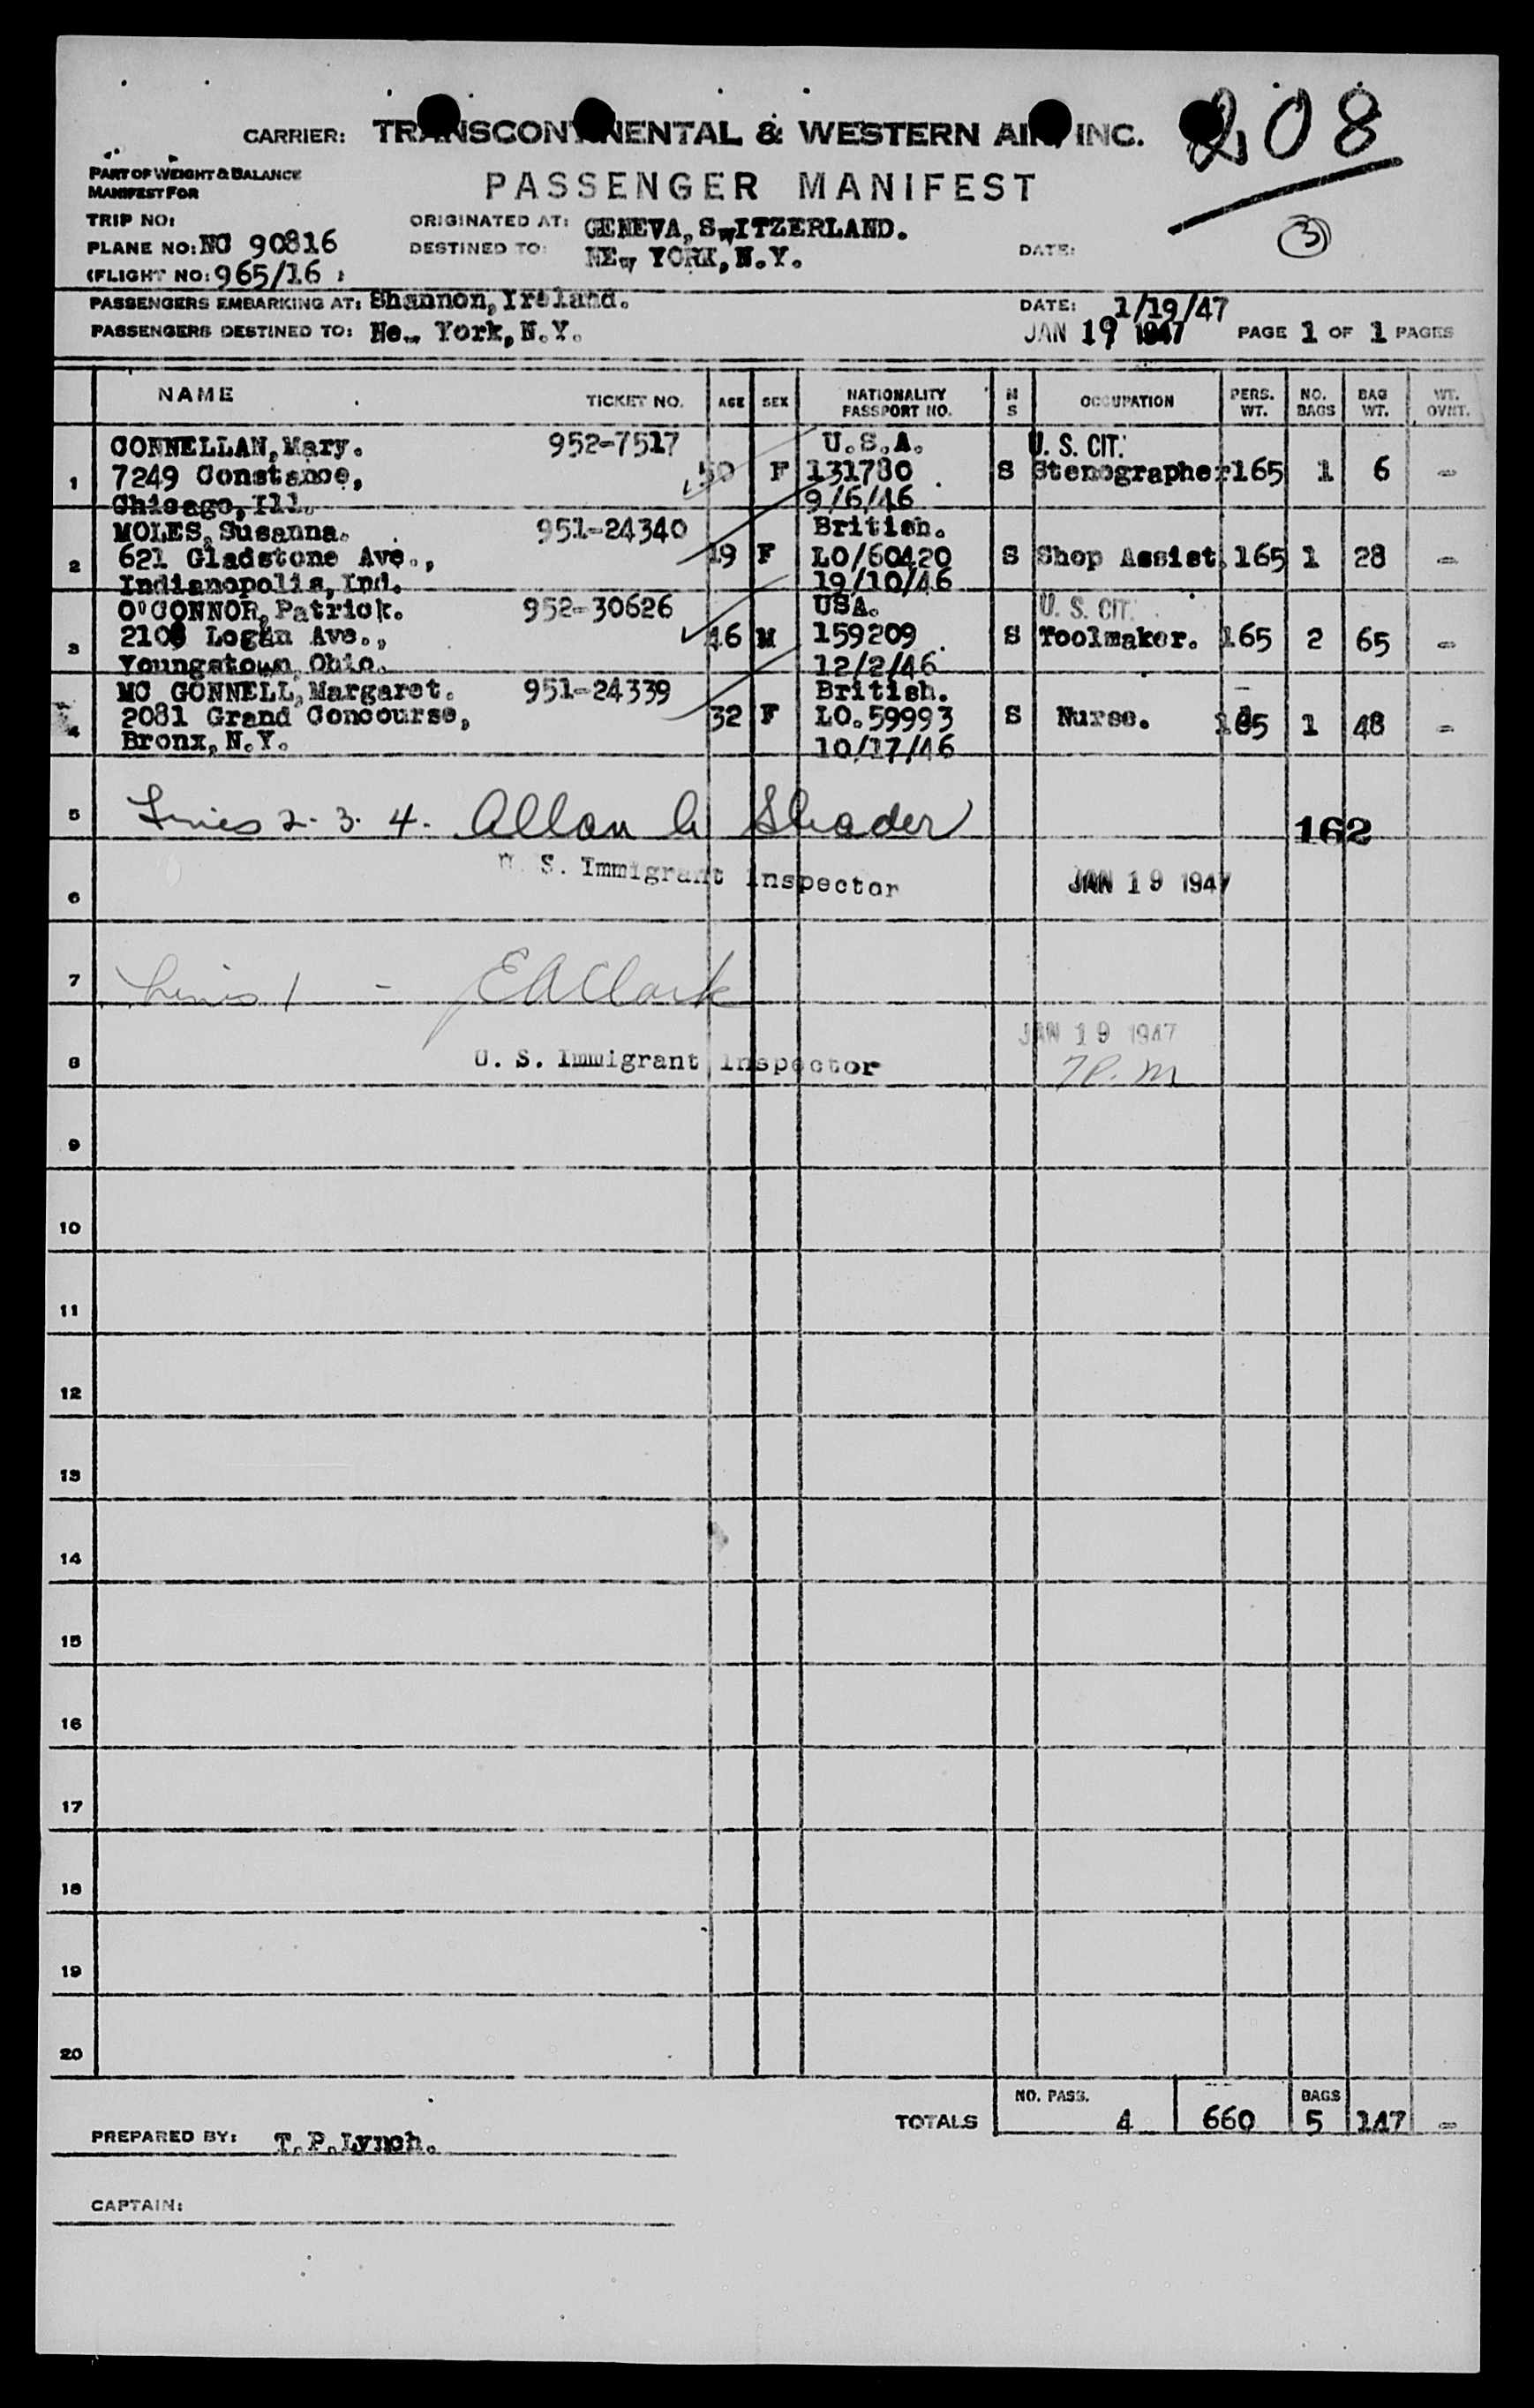 208
CARRIER: TRANSCONTINENTAL & WESTERN AIR, INC.
PART OF WEIGHT & BALANCE
MANIFEST FOR
PASSENGER MANIFEST
3
TRIP NO:
ORIGINATED AT: GENEVA, SwITZERLAND.
PLANE NO: NC 90816
DESTINED TO: NEw YORK, N.Y.
DATE:
(FLIGHT NO: 965/16 )
PASSENGERS EMBARKING AT: Shannon, Ireland.
DATE: 1/19/47
PASSENGERS DESTINED TO: New York, N.Y.
JAN 19 1947 PAGE 1 OF 1 PAGES
NAME TICKET NO. AGE SEX NATIONALITY PASSPORT NO. M S OCCUPATION PERS. WT. NO. BAGS BAG WT. WT. OVNT.
CONNELLAN, Mary. 952-7517 U.S.A. U. S. CIT.
1 7249 Constance, 50 F 131780 S Stenographer 165 1 6 -
Chicago, Ill. 9/6/46
MOLES, Susanna. 951-24340 British.
2 621 Gladstone Ave., 19 F LO/60420 S Shop Assist. 165 1 28 -
Indianopolis, Ind. 19/10/46
O'CONNOR, Patrick. 952-30626 USA. U. S. CIT.
3 2108 Logan Ave., 46 M 159209 S Toolmaker. 165 2 65 -
Youngstown, Ohio. 12/2/46
MC CONNELL, Margaret. 951-24339 British.
4 2081 Grand Concourse, 32 F LO.59993 S Nurse. 165 1 48 -
Bronx, N.Y. 10/17/46
5 Lines 2. 3. 4. Allan G Shader 162
6 U. S. Immigrant Inspector JAN 19 1947
7 Lines 1 - E A Clark
JAN 19 1947
8 U. S. Immigrant Inspector 7 P. M
9
10
11
12
13
14
15
16
17
18
19
20
NO. PASS. BAGS
TOTALS 4 660 5 147 -
PREPARED BY: T.P.Lynch.
CAPTAIN: